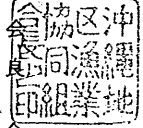 沖繩地
区漁業
協同組
合長印